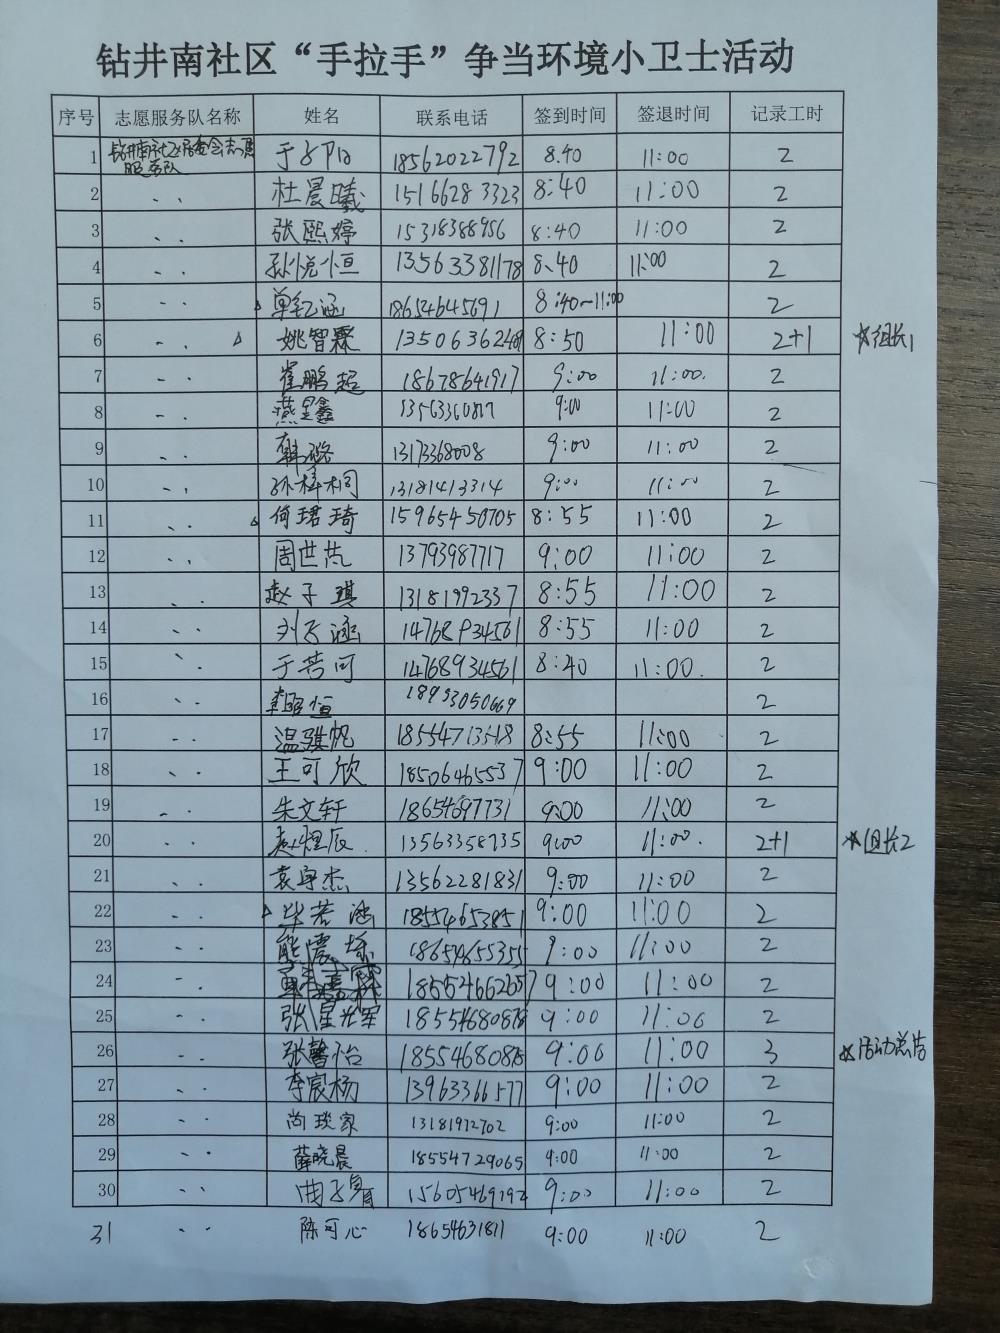 钻井南社区“手拉手”争当环境小卫士活动
序号 志愿服务队名称 姓名 联系电话 签到时间 签退时间 记录工时
1 钻井南社区居委会志愿服务队 于子阳 18562022792 8.40 11:00 2
2 〃 杜晨曦 15166283323 8:40 11:00 2
3 〃 张熙婷 15318388956 8:40 11:00 2
4 〃 孙悦恒 13563381178 8.40 11:00 2
5 单钇涵 18654645691 8:40~11:00 2
6 〃 姚智霖 8:50 11:00 2+1 ☆组长1
7 〃 崔鹏超 18678641917 9:00 11:00. 2
8 〃 燕呈鑫 9:00 11:00 2
9 〃 韩璐 13173368008 9:00 11:00 2
10 〃 孙梓桐 13181413314 9:00 11:00 2
11 〃 何珺琦 15965450705 8:55 11:00 2
12 〃 周世芃 13793987717 9:00 11:00 2
13 〃 赵子琪 13181992337 8:55 11:00 2
14 〃 刘子涵 14768934561 8:55 11:00 2
15 〃 于若可 14768934561 8:40 11:00. 2
16 〃 李昭恒 18953050669 2
17 〃 温骐帆 8:55 11:00 2
18 〃 王可欣 18506465537 9:00 11:00 2
19 〃 朱文轩 18654697731 9:00 11:00 2
20 〃 赵煜辰 13563358735 9:00 11:00. 2+1 ☆组长2
21 〃 袁宇杰 13562281831 9:00 11:00 2
22 〃 毕若涵 18554653851 9:00 11:00 2
23 〃 熊震 18654655355 9:00 11:00 2
24 〃 9:00 11:00 2
25 〃 张星光军 9:00 11:00 2
26 〃 张馨怡 9:00 11:00 3 ☆活动总结
27 〃 李宸杨 13963366577 9:00 11:00 2
28 〃 尚琰家 13181972702 9:00 11:00 2
29 〃 薛晓晨 18554729065 9:00 11:00 2
30 〃 曲子 15605469192 9:00 11:00 2
31 〃 陈可心 18654631811 9:00 11:00 2